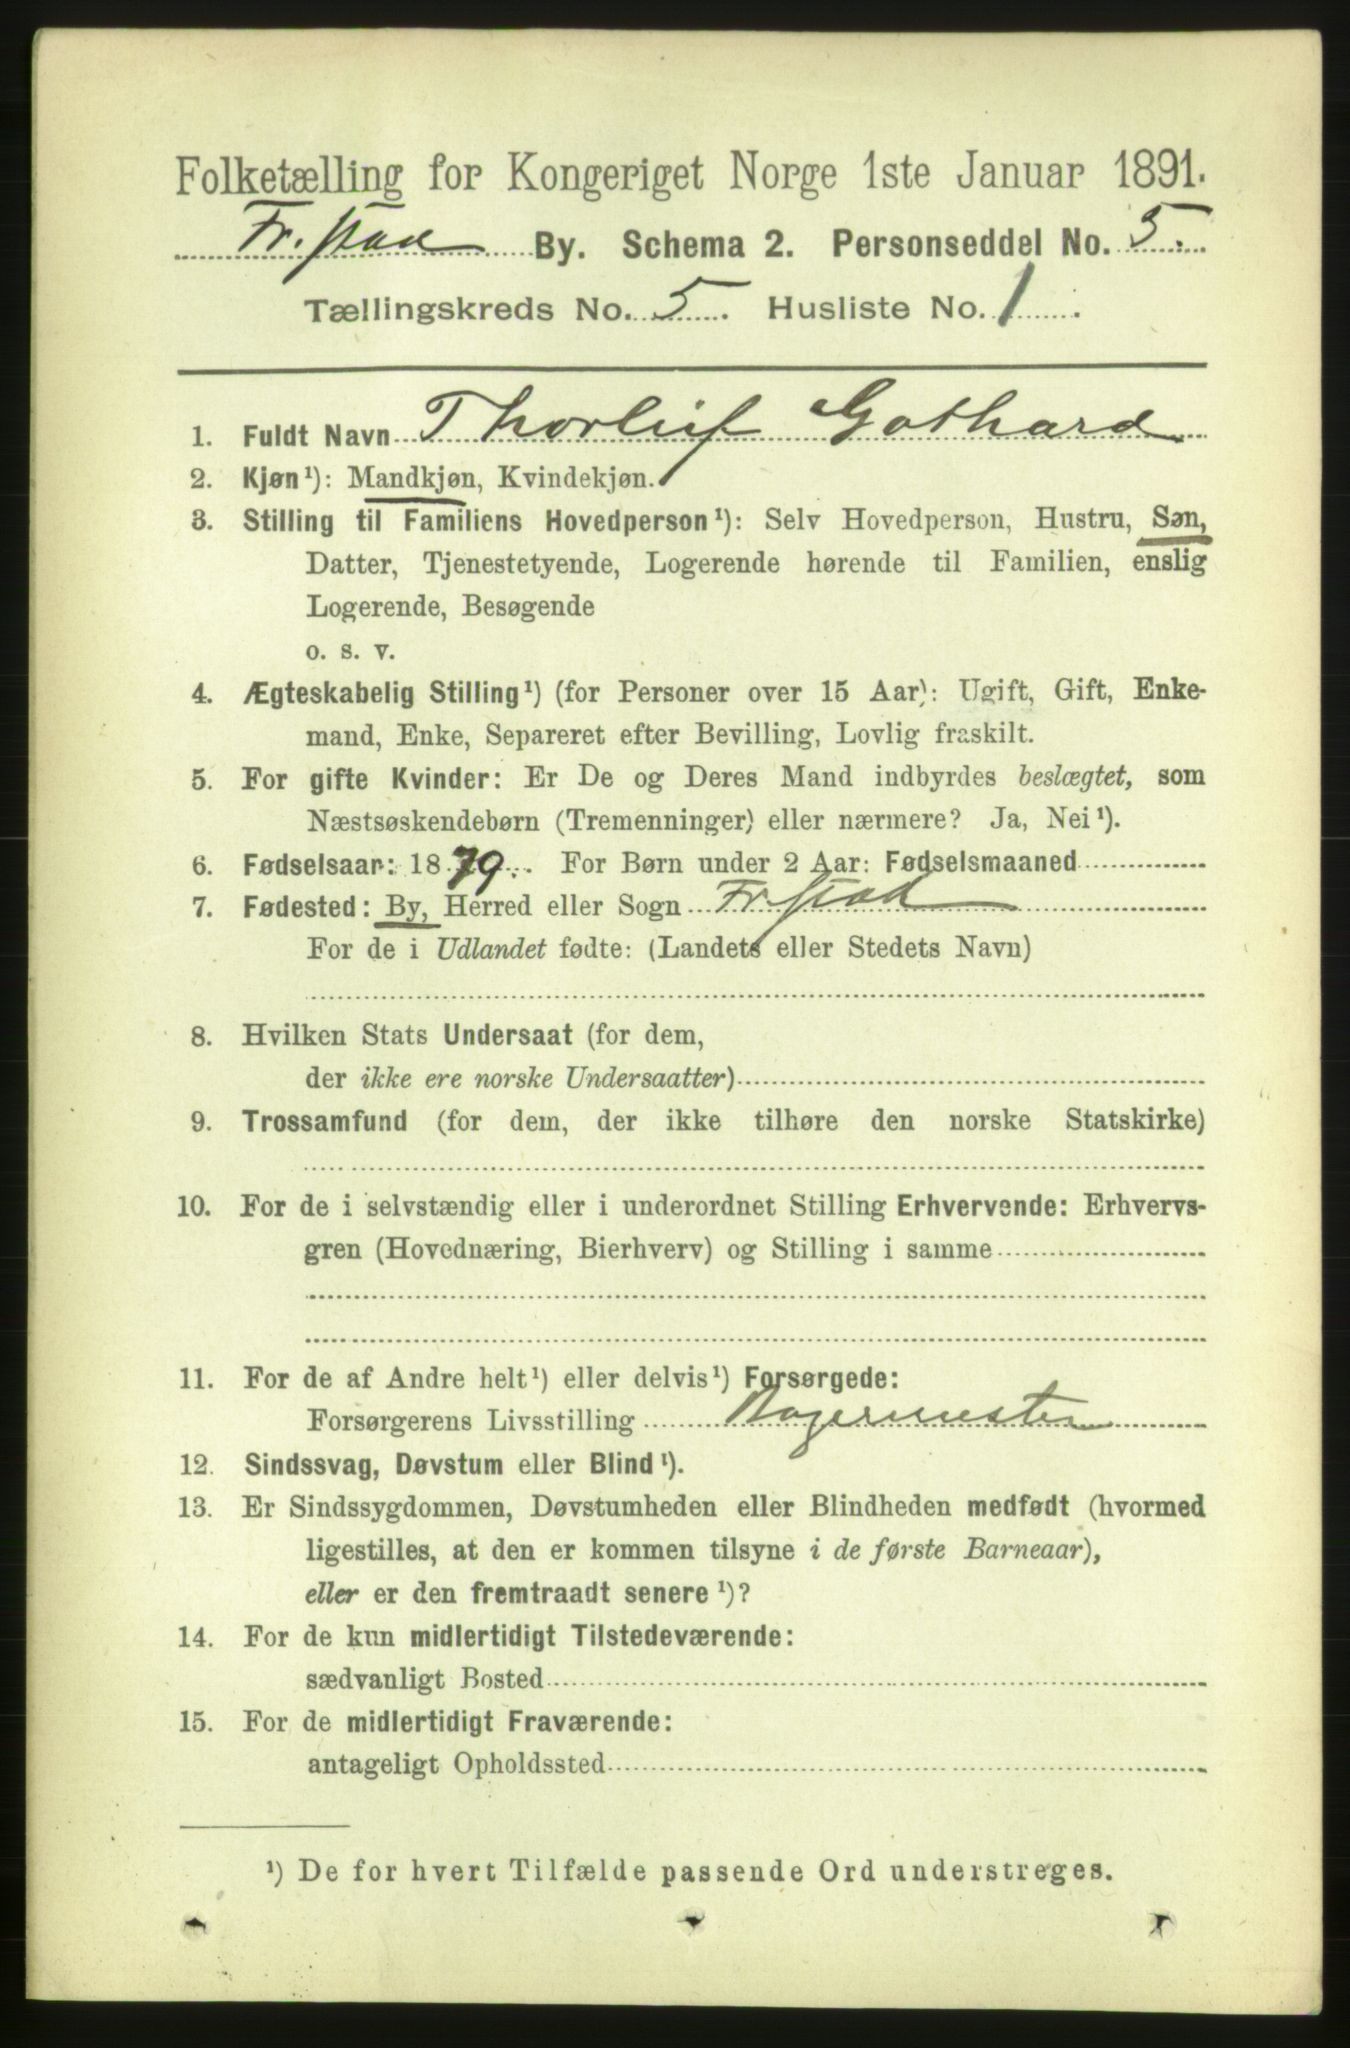 Folketælling for Kongeriget Norge 1ste Januar 1891.
Fr.stad By. Schema 2. Personseddel No. 5.
Tællingskreds No. 5. Husliste No. 1.
1. Fuldt Navn Thorleif Gothard
2. Kjøn¹): Mandkjøn, Kvindekjøn.
3. Stilling til Familiens Hovedperson¹): Selv Hovedperson, Hustru, Søn,
Datter, Tjenestetyende, Logerende hørende til Familien, enslig
Logerende, Besøgende
o. s. v.
4. Ægteskabelig Stilling¹) (for Personer over 15 Aar): Ugift, Gift, Enke-
mand, Enke, Separeret efter Bevilling, Lovlig fraskilt.
5. For gifte Kvinder: Er De og Deres Mand indbyrdes beslægtet, som
Næstsøskendebørn (Tremenninger) eller nærmere? Ja, Nei¹).
6. Fødselsaar: 1879. For Børn under 2 Aar: Fødselsmaaned
7. Fødested: By, Herred eller Sogn Fr.stad
For de i Udlandet fødte: (Landets eller Stedets Navn)
8. Hvilken Stats Undersaat (for dem,
der ikke ere norske Undersaatter)
9. Trossamfund (for dem, der ikke tilhøre den norske Statskirke)
10. For de i selvstændig eller i underordnet Stilling Erhvervende: Erhvervs-
gren (Hovednæring, Bierhverv) og Stilling i samme
11. For de af Andre helt¹) eller delvis¹) Forsørgede:
Forsørgerens Livsstilling Bagermester
12. Sindssvag, Døvstum eller Blind¹).
13. Er Sindssygdommen, Døvstumheden eller Blindheden medfødt (hvormed
ligestilles, at den er kommen tilsyne i de første Barneaar),
eller er den fremtraadt senere¹)?
14. For de kun midlertidigt Tilstedeværende:
sædvanligt Bosted
15. For de midlertidigt Fraværende:
antageligt Opholdssted
¹) De for hvert Tilfælde passende Ord understreges.